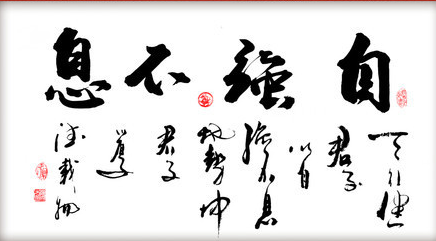 自強不息
天行健
君子
以自
強不息
地勢坤
君子
以厚
德載物